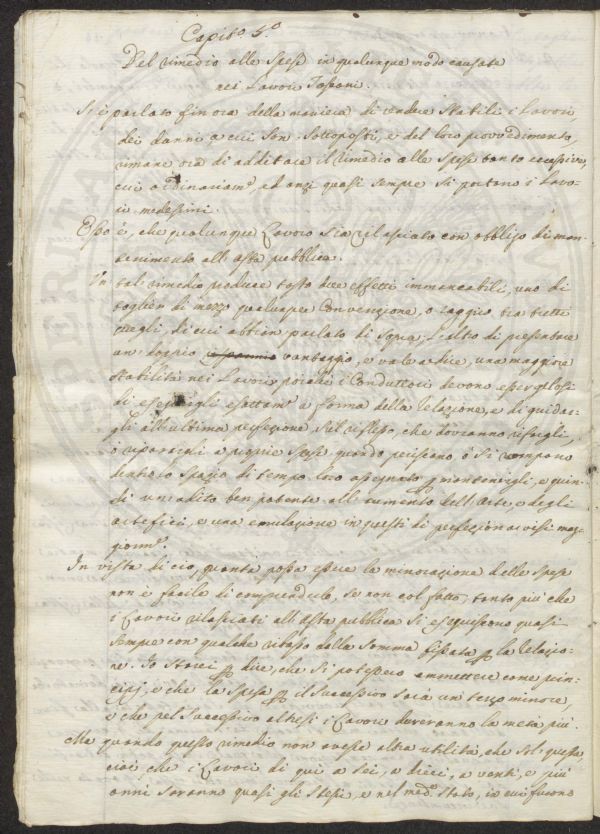 Capit.º 5.º
Del rimedio alle spese in qualunque modo causate
nei Lavori Toscani.
Si è parlato fin ora della maniera di rendere stabili i Lavori,
dei danni a cui son sottoposti, e del loro provvedimento,
rimane ora di additare il rimedio alle spese tanto eccessive,
cui ordinariam.e ed anzi quasi sempre si portano i Lavo-
ri medesimi.
Esso è, che qualunque Lavoro sia rilasciato con obbligo di man-
tenimento all'asta pubblica.
In tal rimedio produce tosto due effetti immancabili, uno di
toglier di mezzo qualunque Convenzione, o raggio tra tutti
quegli, di cui abbiam parlato di sopra; l'altro di presentare
un doppio vantaggio, e vale a dire, una maggiore
stabilità nei Lavori, poichè i Conduttori devono esser gelosi
di eseguirgli esattam.e a forma della Relazione, e di guidar-
gli all'ultima perfezione sul riflesso, che dovranno rifargli,
o ripararli a proprie spese quando periscano o si rompano
dentro lo spazio di tempo loro assegnato p mantenergli, e quin-
di un adito ben potente all'aumento dell'Arte, e degli
artefici, e una emulazione in questi di perfezionarvisi mag-
giorm.e
In vista di ciò, quanta possa essere la minorazione delle spese
non è facile di comprenderla, se non col fatto, tanto più che
i Lavori rilasciati all'Asta pubblica si eseguiscono quasi
sempre con qualche ribasso dalla somma fissata p la Relazio-
ne. Io starei p dire, che si potessero ammettere come prin-
cipj, e che la spesa p il successivo sarà un terzo minore,
e che pel successivo altresì i Lavori dureranno la metà più.
Ma quando questo rimedio non avesse altra utilità, che sol questa,
cioè che i Lavori di qui a sei, a dieci, a venti, e più
anni saranno quasi gli stessi, e nel med.º stato, in cui furono